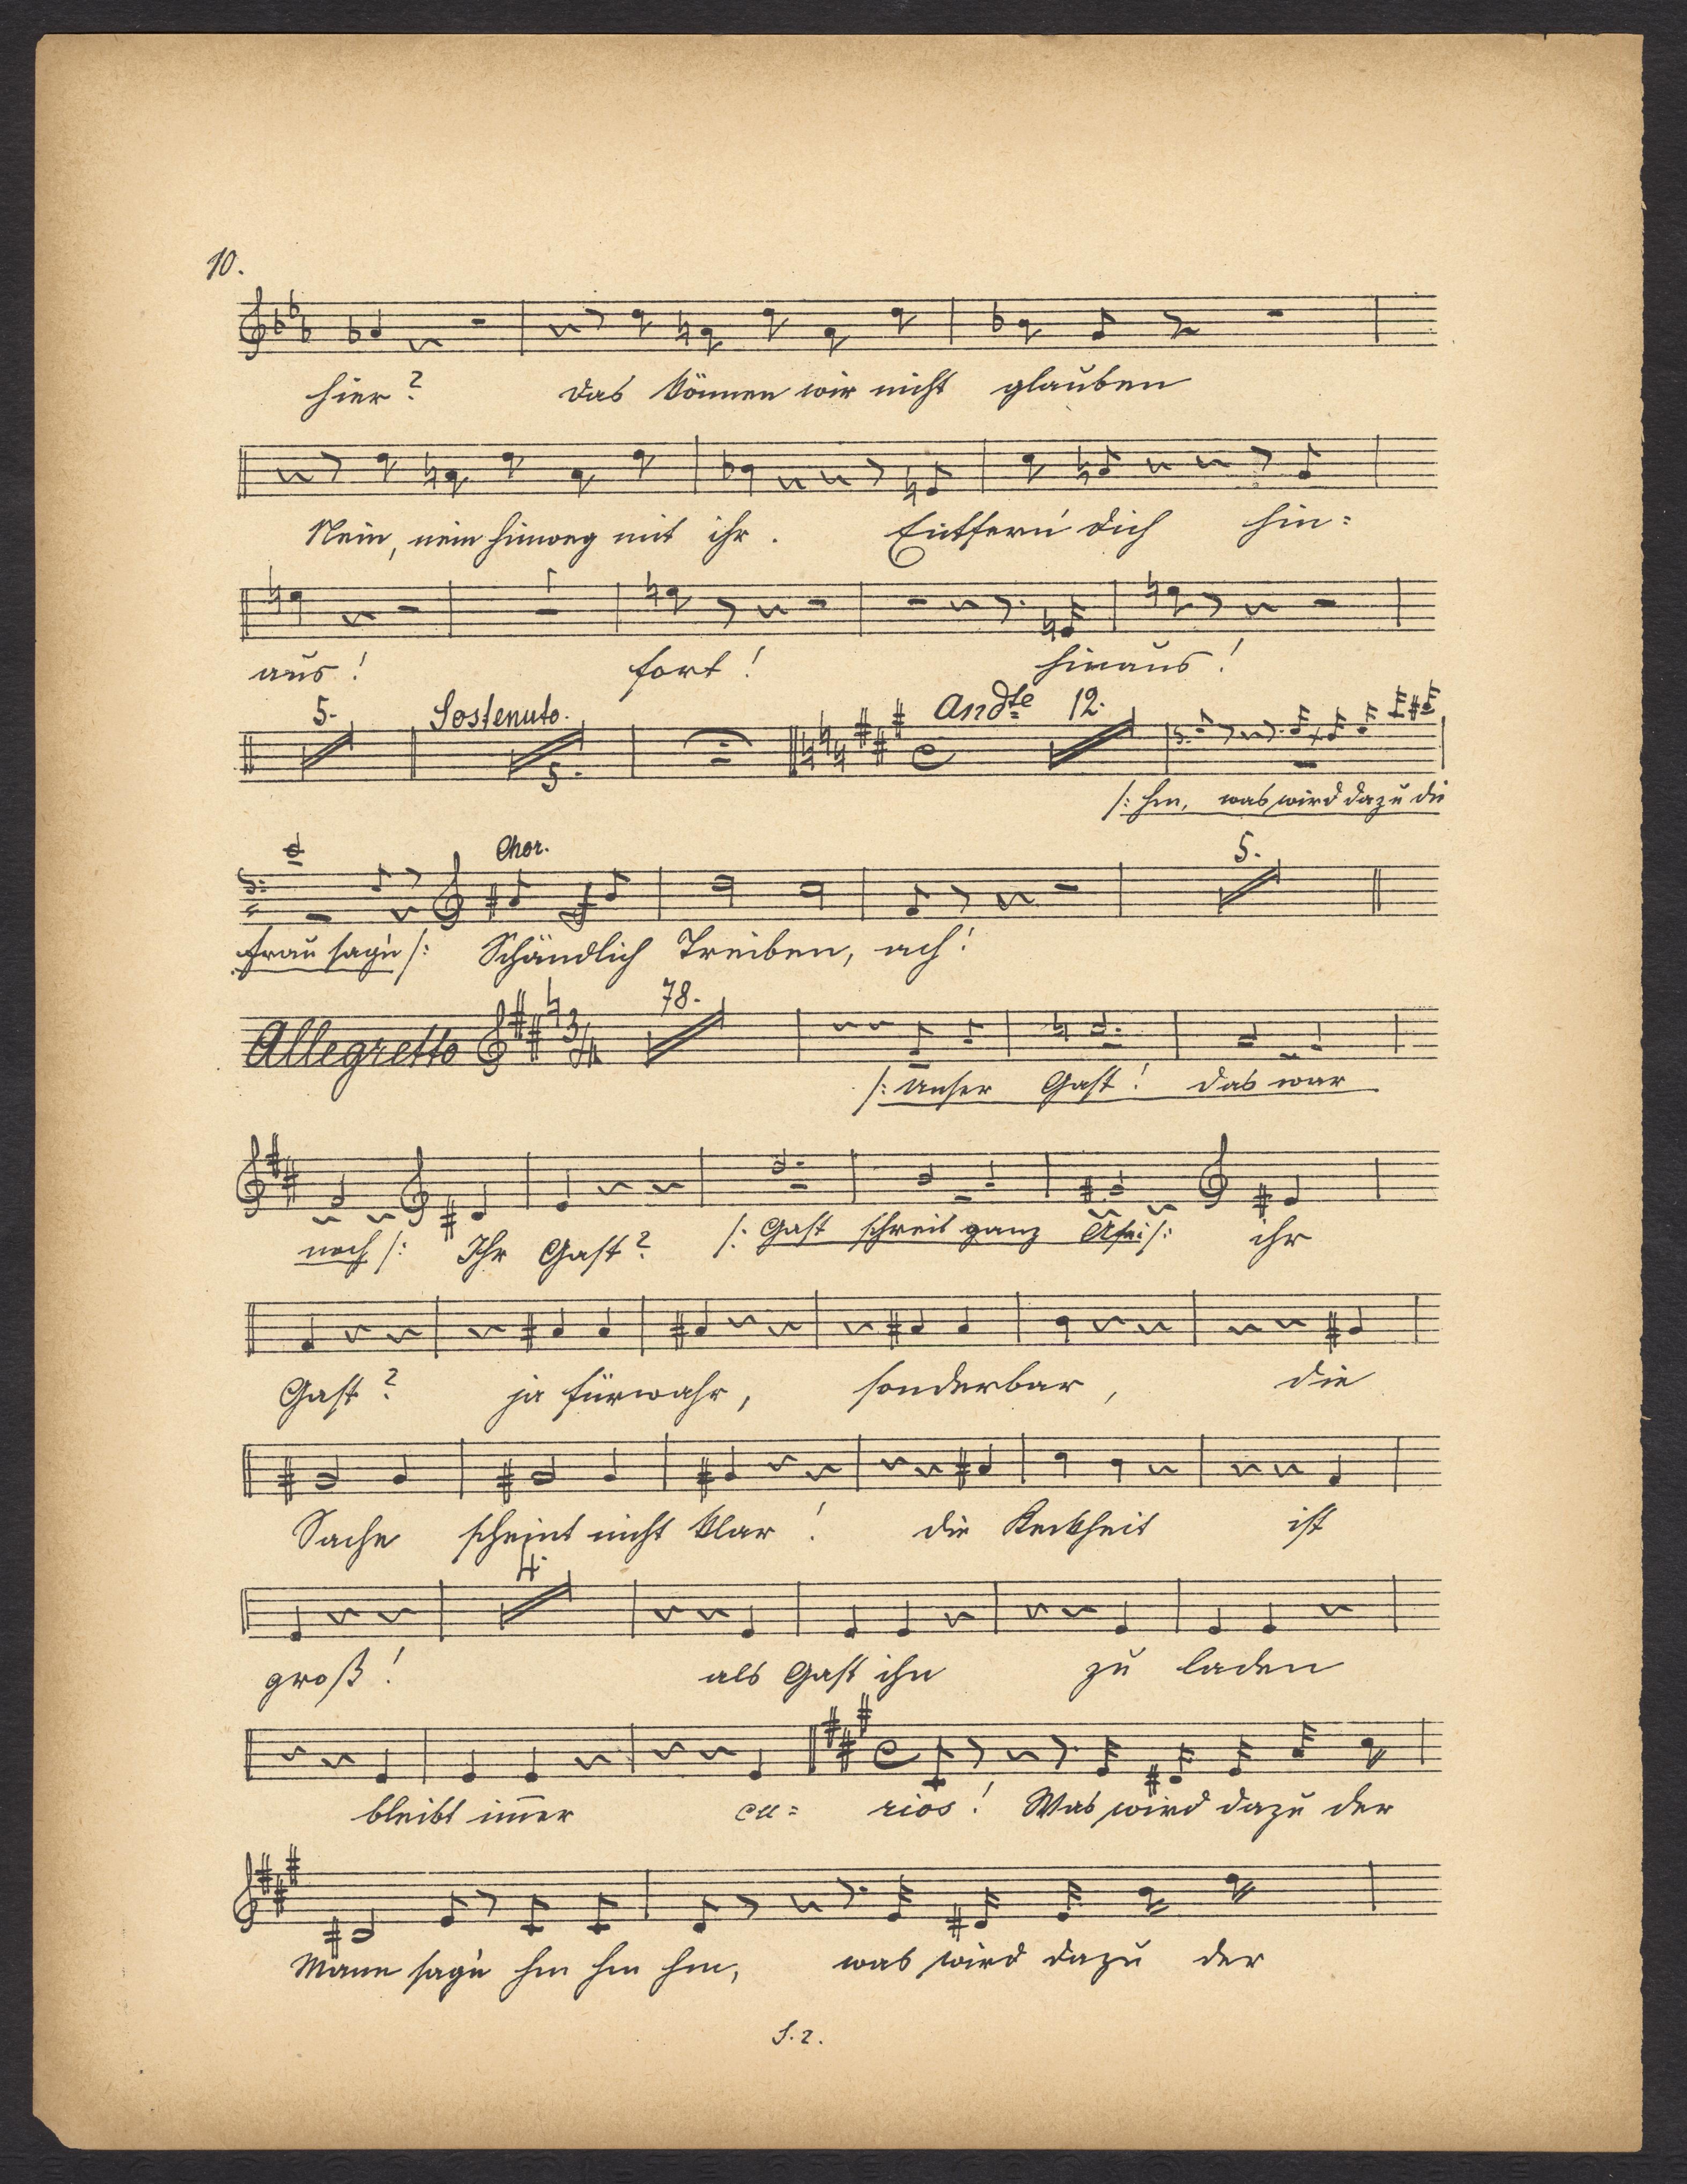 10.
hier? das können wir nicht glauben
Nein, nein hinweg mit ihr. Entfern' dich hin=
aus! fort! hinaus!
5. Sostenuto. 5. Andte 12.
/: hm, was wird dazu die
Chor. 5.
Frau sag'n :/ Schändlich Treiben, ach!
Allegretto 3/4 78.
/: Unser Gast! das war
noch /: Ihr Gast? /: Gast schreit ganz /: ihr
Gast? ja fürwahr, sonderbar, die
Sache scheint nicht klar! die Keckheit ist
4.
groß! als Gast ihn zu laden
bleibt im̅er cu= rios! Was wird dazu der
Mann sag'n hm hm hm, was wird dazu der
S. 2.